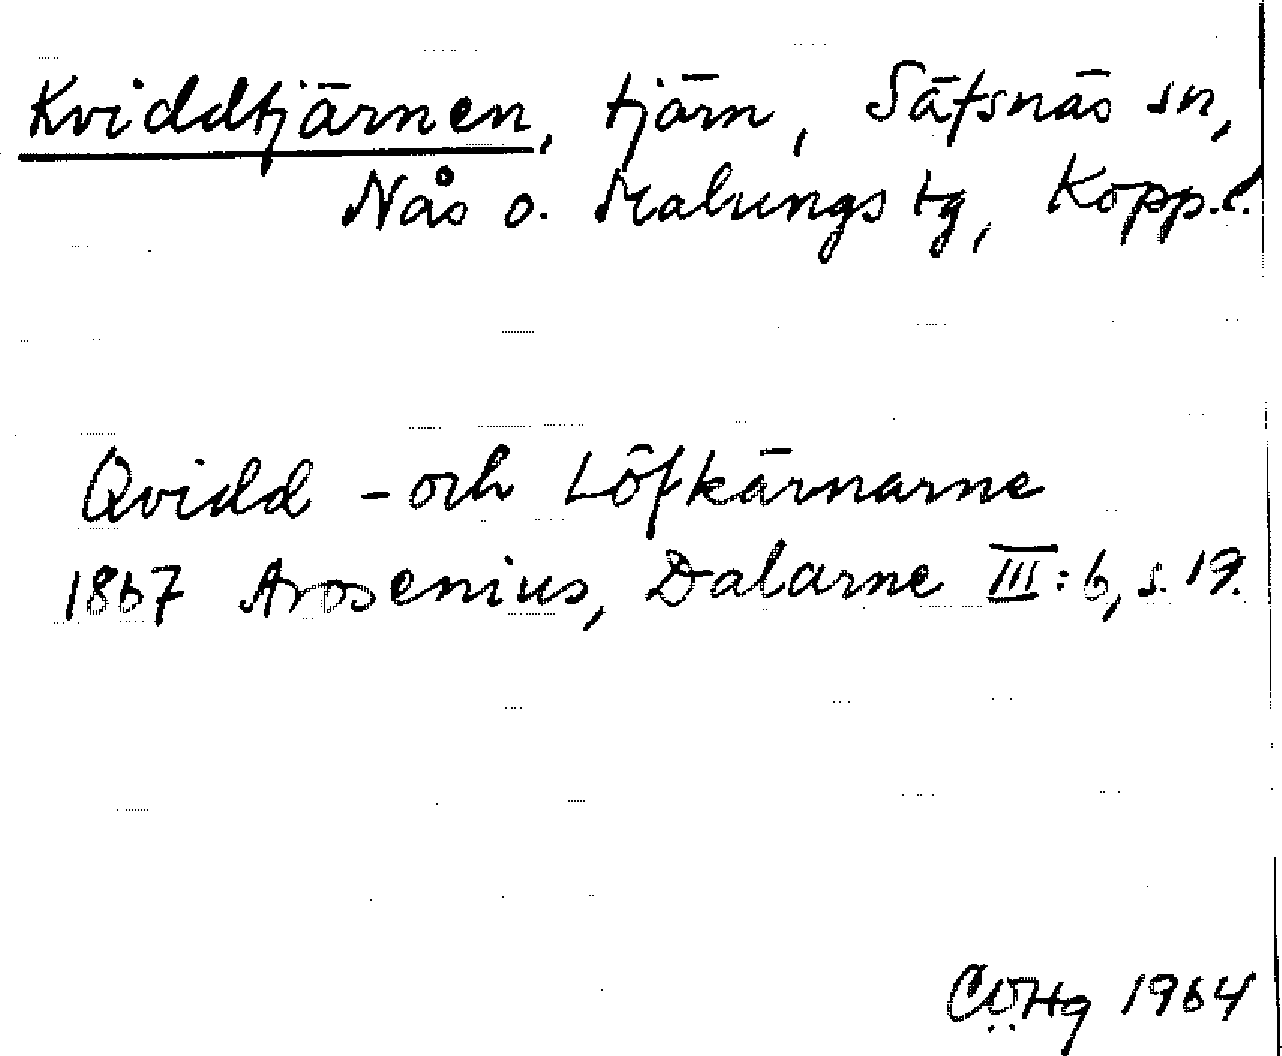 Kviddtjärnen, tjärn, Säfsnäs sn,
Nås o. Malungs tg, Kopp.l.
Qvidd - och Löfkärnarne
1867 Arosenius, Dalarne III:6, s. 19.
CÖHg 1964